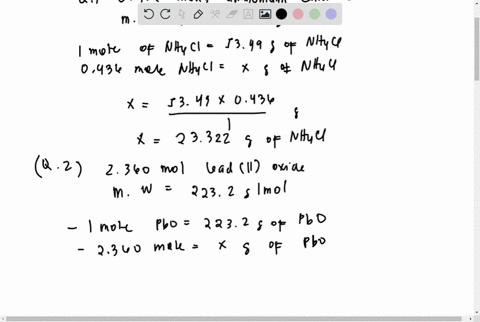 m.
1 mole of NH4Cl = 53.49 g of NH4Cl
0.436 mole NH4Cl = x g of NH4Cl
x = 53.49 x 0.436 g
1
x = 23.322 g of NH4Cl
(Q.2) 2.360 mol lead (II) oxide
m. W = 223.2 g/mol
- 1 mole PbO = 223.2 g of PbO
- 2.360 mole = x g of PbO